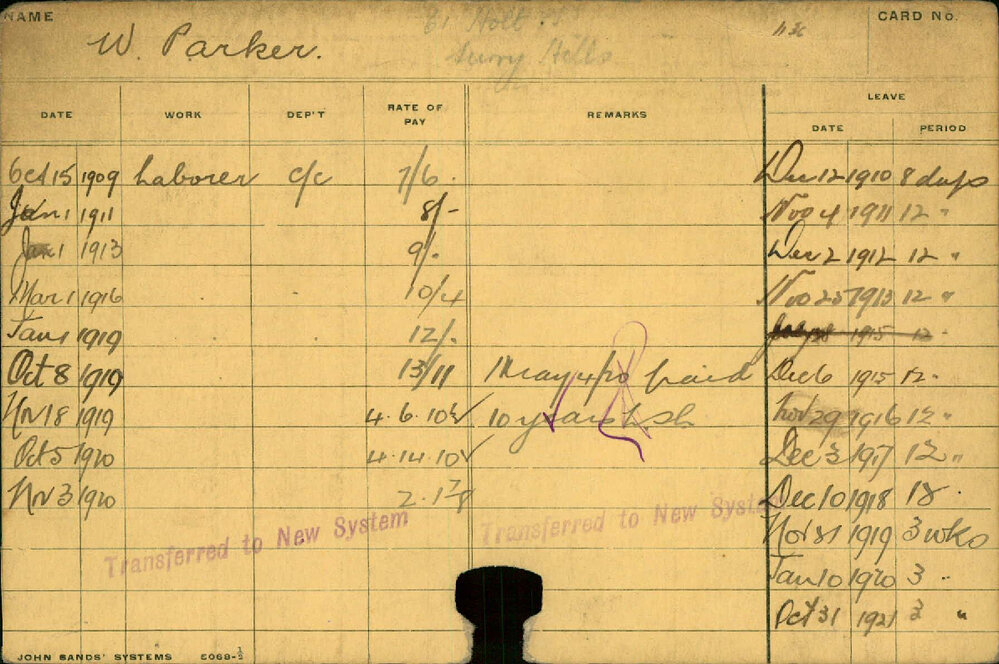 NAME W. Parker. 81 Holt St CARD No.
Surry Hills
DATE WORK DEP'T RATE OF PAY REMARKS LEAVE
DATE PERIOD
Oct 15 1909 Laborer c/c 7/6. Dec 12 1910 8 days
Jan 1 1911 8/- Nov 4 1911 12 "
Jan 1 1913 9/. Dec 2 1912 12 "
Mar 1 1916 10/4 Nov 25 1913 12 "
Jan 1 1919 12/. 1915 12
Oct 8 1919 13/11 May 4/20 paid Dec 6 1915 12 "
Nov 18 1919 4.6.10½ 10 years Nov 29 1916 12 "
Oct 5 1920 4.14.10 Dec 3 1917 12 "
Nov 3 1920 2.17 Dec 10 1918 18.
Transferred to New System Transferred to New System
Nov 31 1919 3 wks
Jan 10 1920 3 "
Oct 31 1921 3 "
JOHN SANDS' SYSTEMS 6068-½